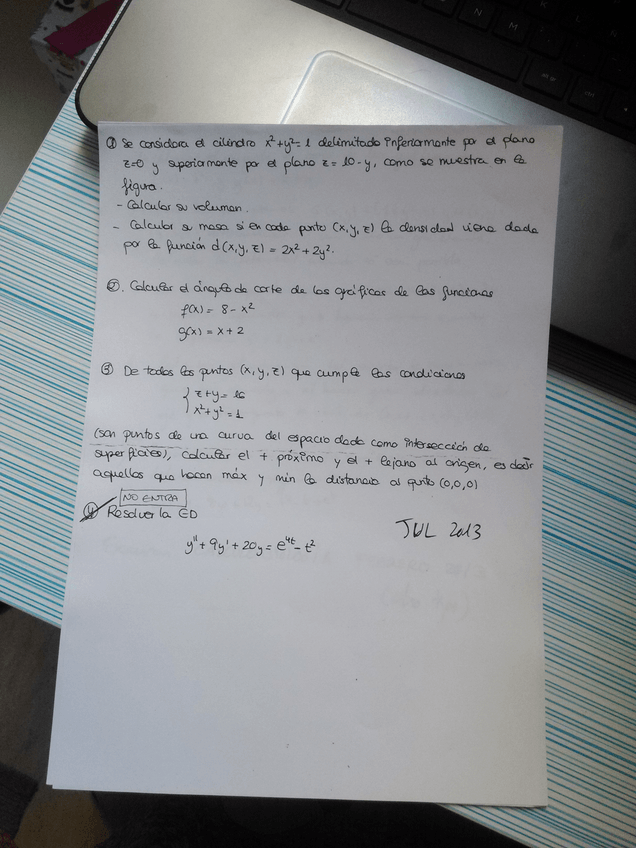 ① Se considera el cilindro x²+y²=1 delimitado inferiormente por el plano
z=0 y superiormente por el plano z=10-y, como se muestra en la
figura.
- Calcular su volumen.
- Calcular su masa si en cada punto (x,y,z) la densidad viene dada
por la función d(x,y,z) = 2x²+2y².
②. Calcular el ángulo de corte de las gráficas de las funciones
f(x) = 8 - x²
g(x) = x + 2
③ De todos los puntos (x,y,z) que cumple las condiciones
z+y = 10
x²+y² = 1
(son puntos de una curva del espacio dada como intersección de
superficies), calcular el + próximo y el + lejano al origen, es decir
aquellos que hacen máx y min la distancia al punto (0,0,0)
NO ENTRA
④ Resolver la ED
JUL 2013
y'' + 9y' + 20y = e^4t - t²